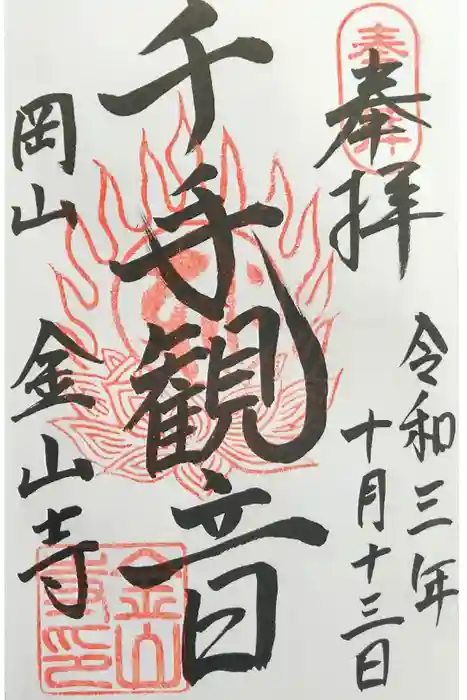 奉拝
令和三年
十月十三日
千手観音
岡山 金山寺
金山寺印